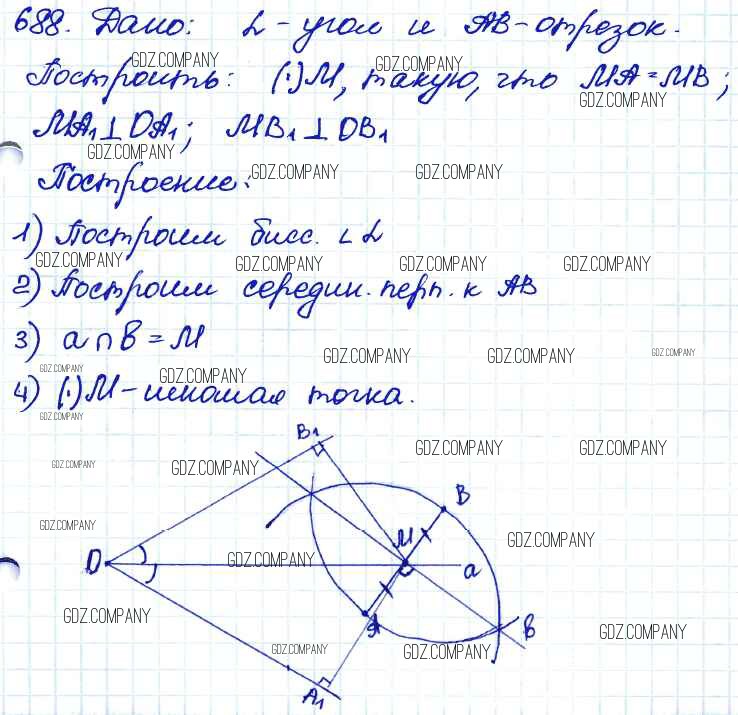 688. Дано: L - угол и AB - отрезок.
GDZ.COMPANY GDZ.COMPANY
Построить: (·)M, такую, что MA = MB;
GDZ.COMPANY
MA₁⊥DA₁; MB₁⊥DB₁
GDZ.COMPANY GDZ.COMPANY GDZ.COMPANY
Построение:
1) Построим бисс. ∠L
GDZ.COMPANY GDZ.COMPANY GDZ.COMPANY GDZ.COMPANY
2) Построим середин. перп. к AB
3) a∩B = M
GDZ.COMPANY GDZ.COMPANY GDZ.COMPANY
GDZ.COMPANY GDZ.COMPANY
4) (·)M - искомая точка.
GDZ.COMPANY
B₁
GDZ.COMPANY GDZ.COMPANY
GDZ.COMPANY GDZ.COMPANY
B
GDZ.COMPANY
M GDZ.COMPANY
D GDZ.COMPANY a
GDZ.COMPANY
A B GDZ.COMPANY
GDZ.COMPANY GDZ.COMPANY
A₁